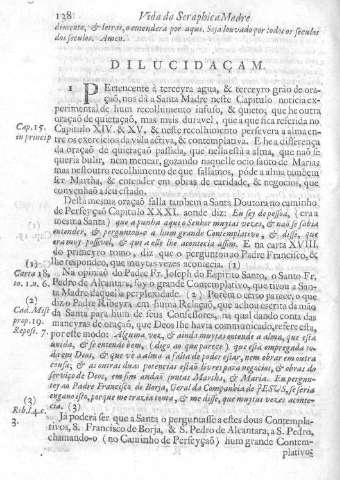 128 Vida do Seraphica Madre
dimento, & letras, o entendera por aqui. Seja louvado por todos os seculos
dos seculos. Amen.
DILUCIDAÇAM.
1 PErtencente á terceyra agua, & terceyro grão de ora-
çaõ, nos dá a Santa Madre neste Capitulo noticia ex-
perimental de hum recolhimento infuso, & quieto, que he outra
oraçaõ de quietaçaõ, mas mais duravel, que a que fica referida no
Cap. 15.
in princip
Capitulo XIV. & XV, & neste recolhimento persevera a alma en-
tre os exercicios da vida activa, & contemplativa. E he a differença
da oraçaõ de quietaçaõ passada, que nella está a alma, que naõ se
queria bulir, nem menear, gozando naquelle ocio santo de Maria:
mas nest'outro recolhimento de que fallamos, póde a alma tambem
ser Martha, & entender em obras de caridade, & negocios, que
convenhaõ a seu estado.
Desta mesma oraçaõ falla tambem a Santa Doutora no caminho
de Perfeyçaõ Capitulo XXXI. aonde diz: Eu sey de pessoa, (era a
mesma Santa) que a punha aqui o Senhor muytas vezes, & naõ se sabia
entender, & perguntava a hum grande Contemplativo, & disse, que
era muy possivel, & que a elle lhe acontecia assim. E na carta XVIII.
do primeyro tomo, diz que o perguntou ao Padre Francisco, &
(1)
lhe respondeo, que muytas vezes acontecia. (1)
Carta 18.
to. 1. n. 6.
Na opiniaõ do Padre Fr. Joseph do Espirito Santo, o Santo Fr.
Pedro de Alcantara, foy o grande Contemplativo, que tirou a San-
(2)
ta Madre daquella perplexidade. (2) Porém o certo parece, o que
Cad. Mist
prop. 19.
Repost. 7.
diz o Padre Ribeyra em huma Relaçaõ, que achou escrita da maõ
da Santa para hum de seus Confessores, na qual dando conta das
maneyras de oraçaõ, que Deos lhe havia communicado, refere esta,
por este modo: Alguma vez, & ainda muytas entende a alma, que está
unida, & se entende bem, (digo ao que parece) que está empregada to-
da em Deos, & que vè a alma a falta de poder estar, nem obrar em outra
cousa; & as outras duas potencias estaõ livres para negocios, & obras do
serviço de Deos, em sim andaõ juntas Martha, & Maria. Eu pergun-
tey ao Padre Francisco de Borja, Geral da Companhia de JESUS, se seria
engano isto, porque me trazia tonta, & me disse, que muytas vezes aconte-
cia. (3)
(3)
Rib. l. 4. c.
3.
Já poderá ser que a Santa o perguntasse a estes dous Contempla-
tivos, S. Francisco de Borja, & S. Pedro de Alcantara, a S. Pedro,
chamando-o (no Caminho de Perfeyçaõ) hum grande Contem-
plativo;